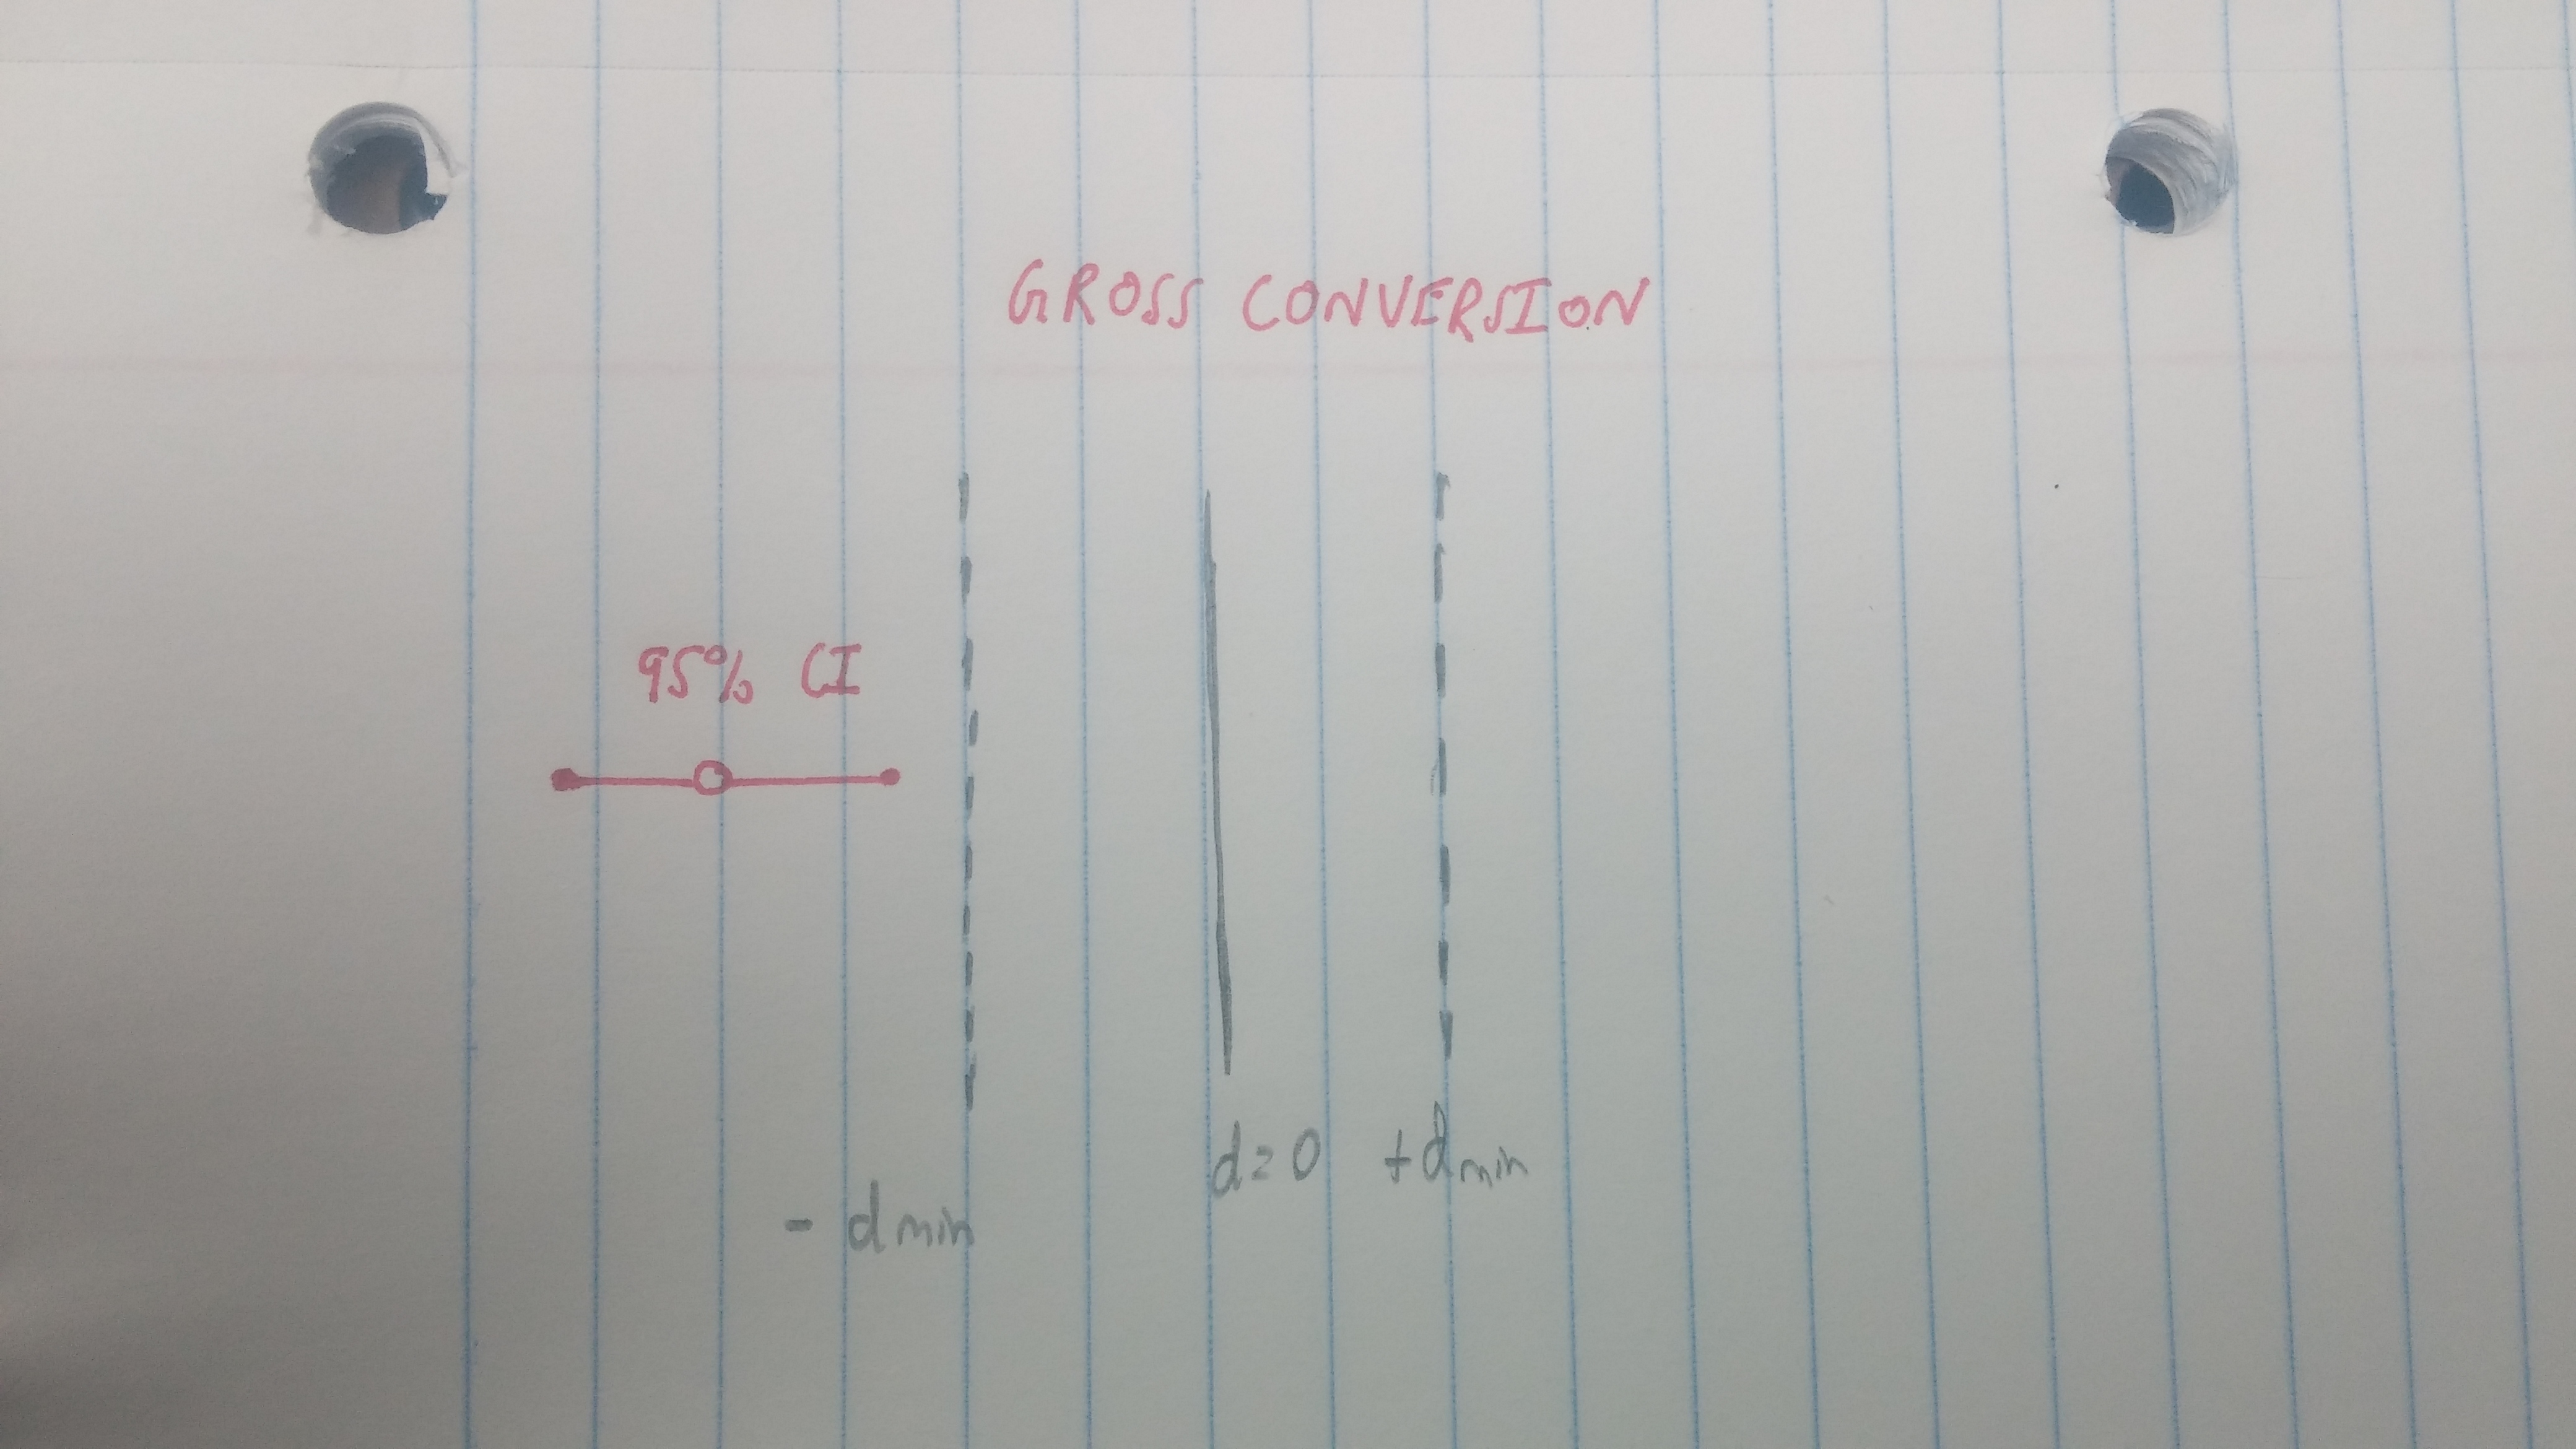 GROSS CONVERSION
95% CI
d=0
+dmin
- dmin